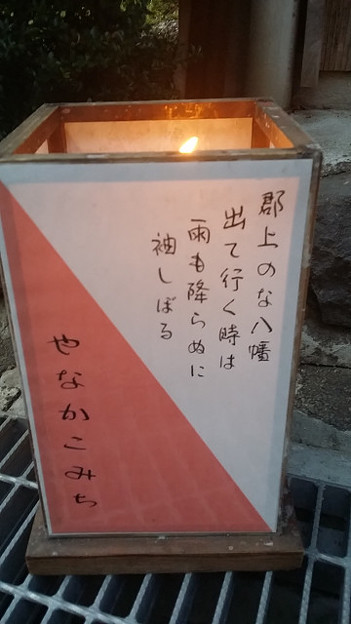 郡上のな八幡
出て行く時は
雨も降らぬに
袖しぼる
やなかこみち